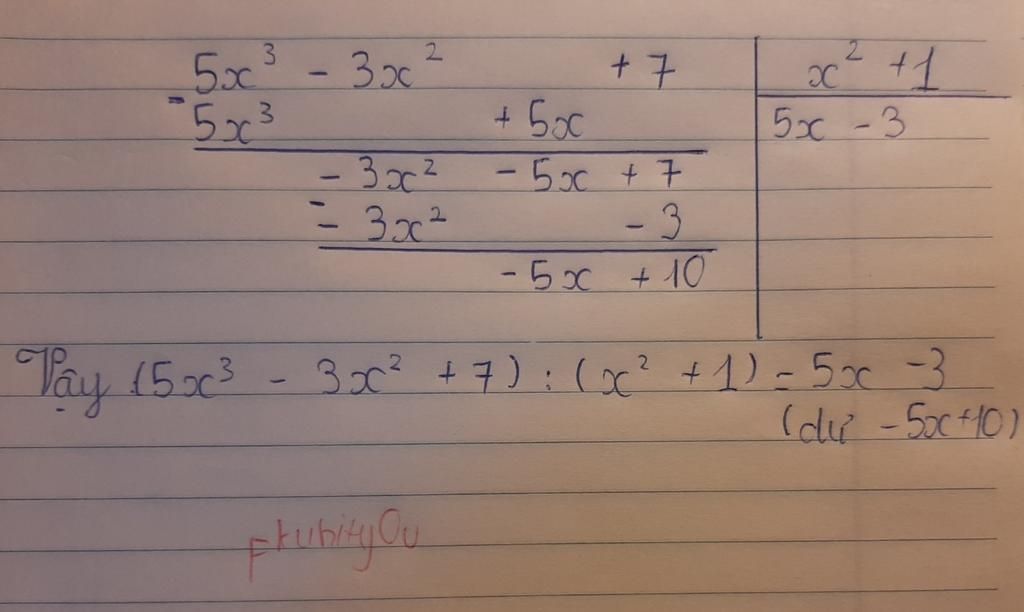 5x³ - 3x² + 7 | x² + 1
- 5x³ + 5x | 5x - 3
- 3x² - 5x + 7
- - 3x² - 3
- 5x + 10
Vậy (5x³ - 3x² + 7) : (x² + 1) = 5x - 3
(dư - 5x + 10)